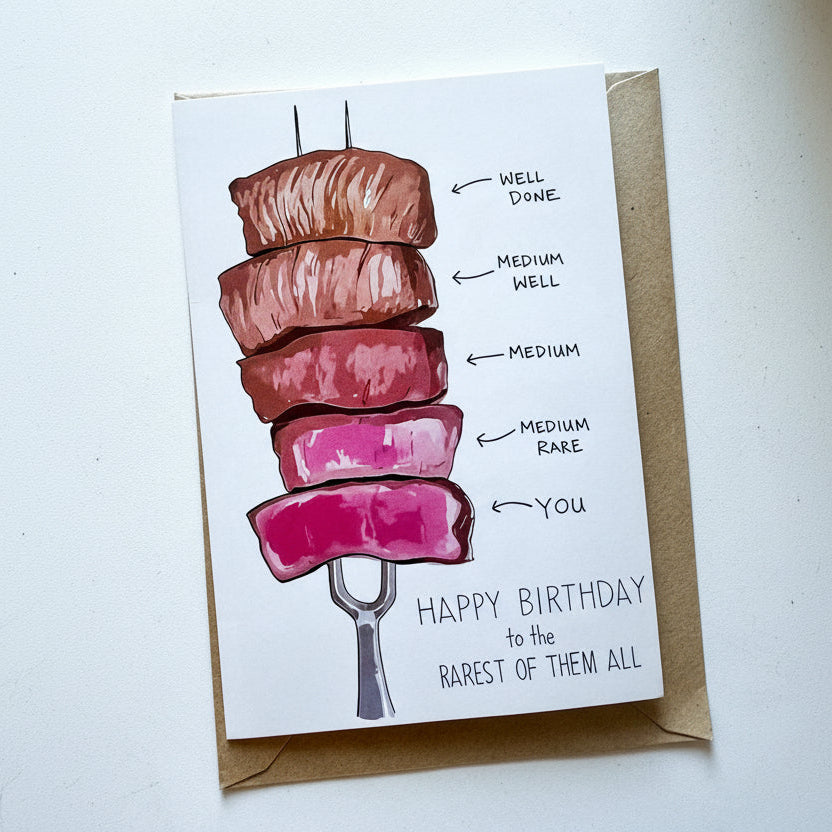 WELL
DONE
MEDIUM
WELL
MEDIUM
MEDIUM
RARE
YOU
HAPPY BIRTHDAY
to the
RAREST OF THEM ALL